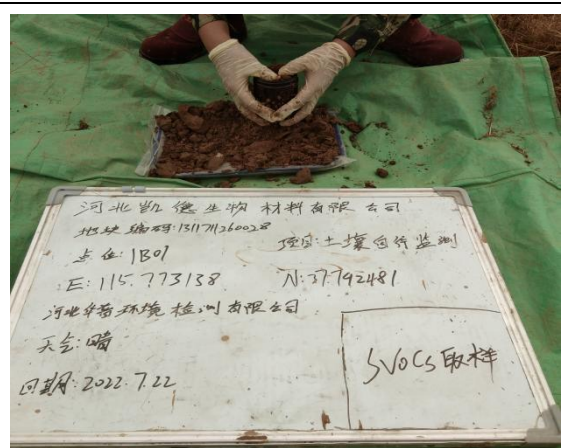 河北凯德生物材料有限公司
地块编码:1311711260028
点位:1B01 项目:土壤自行监测
E:115.773138 N:37.792481
河北华普环境检测有限公司
天气:晴
日期:2022.7.22
SVOCs取样